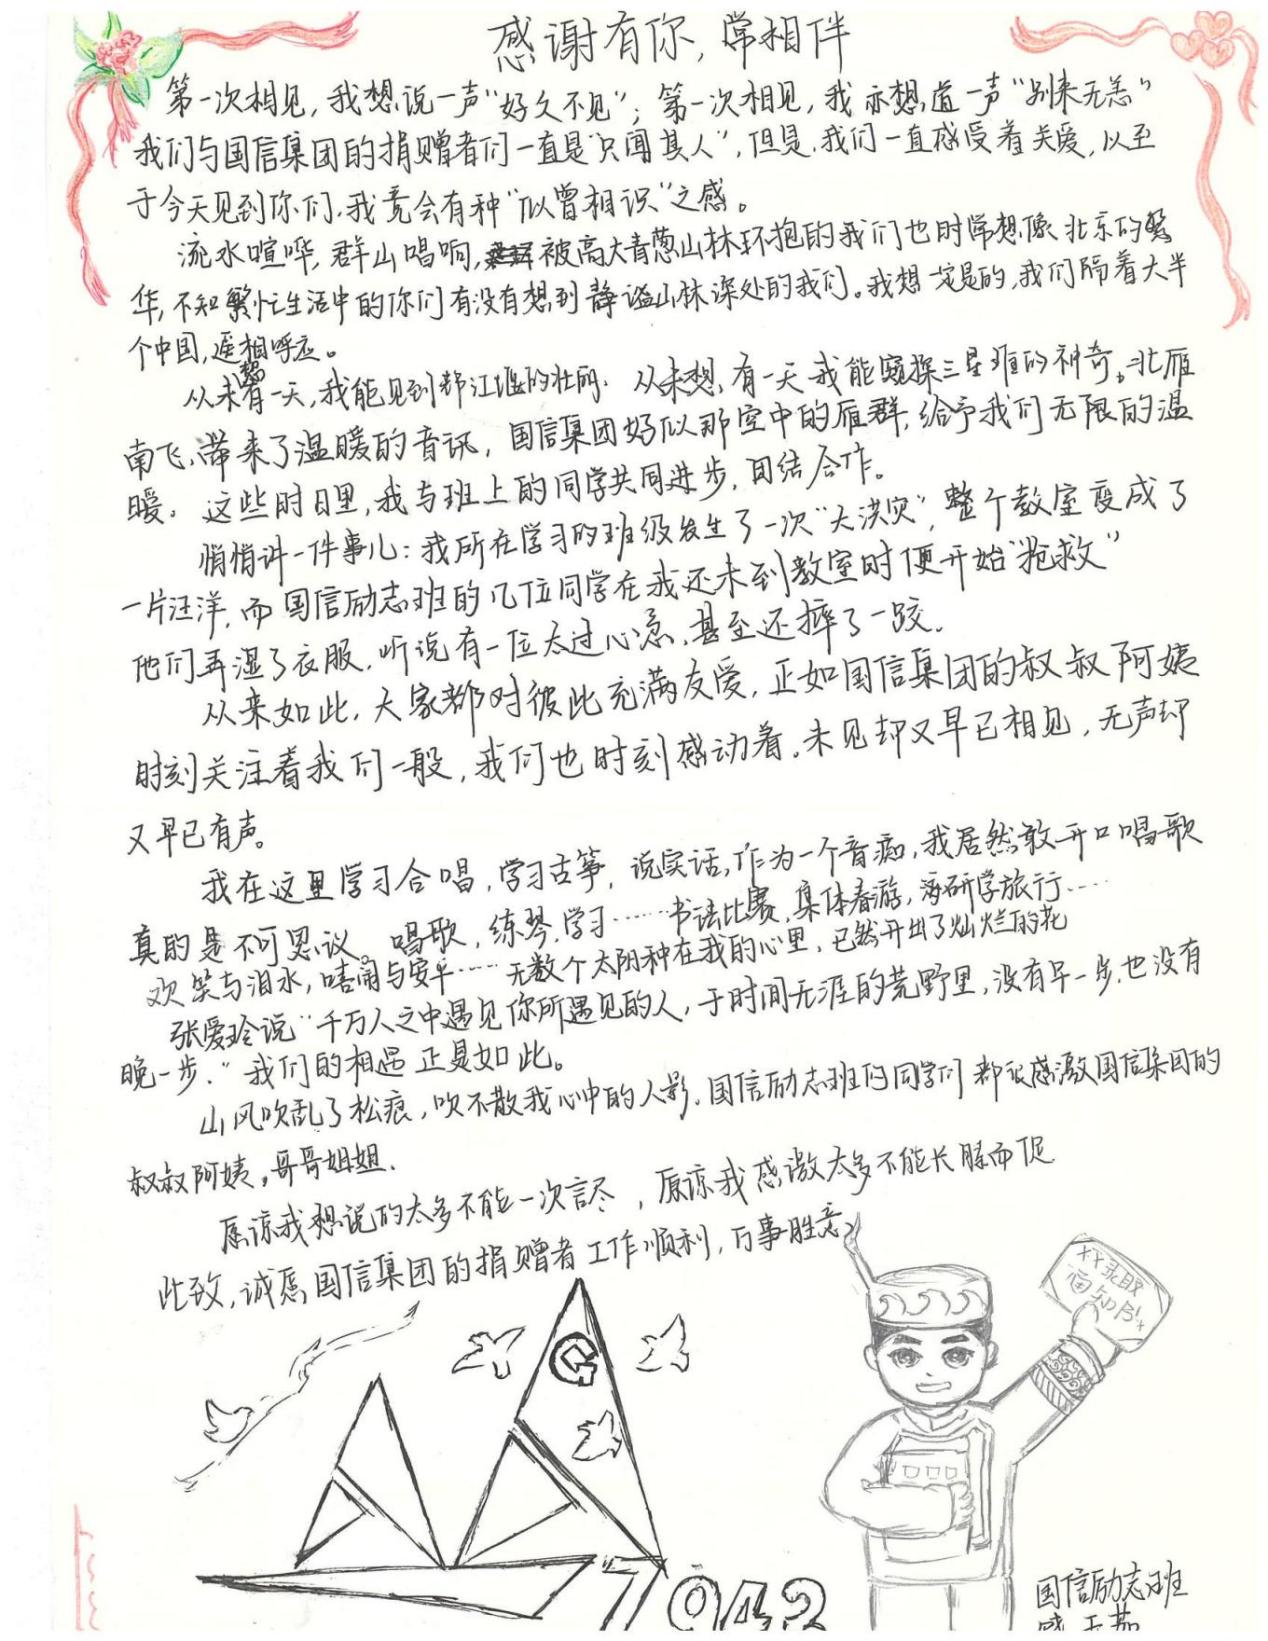 感谢有你，常相伴
第一次相见，我想说一声“好久不见”；第一次相见，我亦想道一声“别来无恙”
我们与国信集团的捐赠者们一直是“只闻其人”，但是，我们一直感受着关爱，以至
于今天见到你们，我竟会有种“似曾相识”之感。
流水喧哗，群山唱响，被高大青葱山林环抱的我们也时常想像北京的繁
华，不知繁忙生活中的你们有没有想到静谧山林深处的我们。我想一定是的，我们隔着大半
个中国，遥相呼应。
从未想有一天，我能见到都江堰的壮丽，从未想，有一天我能窥探三星堆的神奇。北雁
南飞，带来了温暖的音讯，国信集团好似那空中的雁群，给予我们无限的温
暖。这些时日里，我与班上的同学共同进步，团结合作。
悄悄讲一件事儿：我所在学习的班级发生了一次“大洪灾”，整个教室变成了
一片汪洋，而国信励志班的几位同学在我还未到教室时便开始“抢救”
他们弄湿了衣服，听说有一位太过心急，甚至还摔了一跤。
从来如此，大家都对彼此充满友爱，正如国信集团的叔叔阿姨
时刻关注着我们一般，我们也时刻感动着。未见却又早已相见，无声却
又早已有声。
我在这里学习合唱，学习古筝，说实话，作为一个音痴，我居然敢开口唱歌
真的是不可思议。唱歌，练琴，学习……书法比赛，集体春游，研学旅行……
欢笑与泪水，嘻闹与安平……无数个太阳种在我的心里，已然开出了灿烂的花
张爱玲说“千万人之中遇见你所遇见的人，于时间无涯的荒野里，没有早一步，也没有
晚一步，”我们的相遇正是如此。
山风吹乱了松痕，吹不散我心中的人影，国信励志班的同学们都很感激国信集团的
叔叔阿姨，哥哥姐姐.
原谅我想说的太多不能一次言尽，原谅我感激太多不能长膝而促
此致，诚愿国信集团的捐赠者工作顺利，万事胜意
XX录取
通知书
G
1942
国信励志班